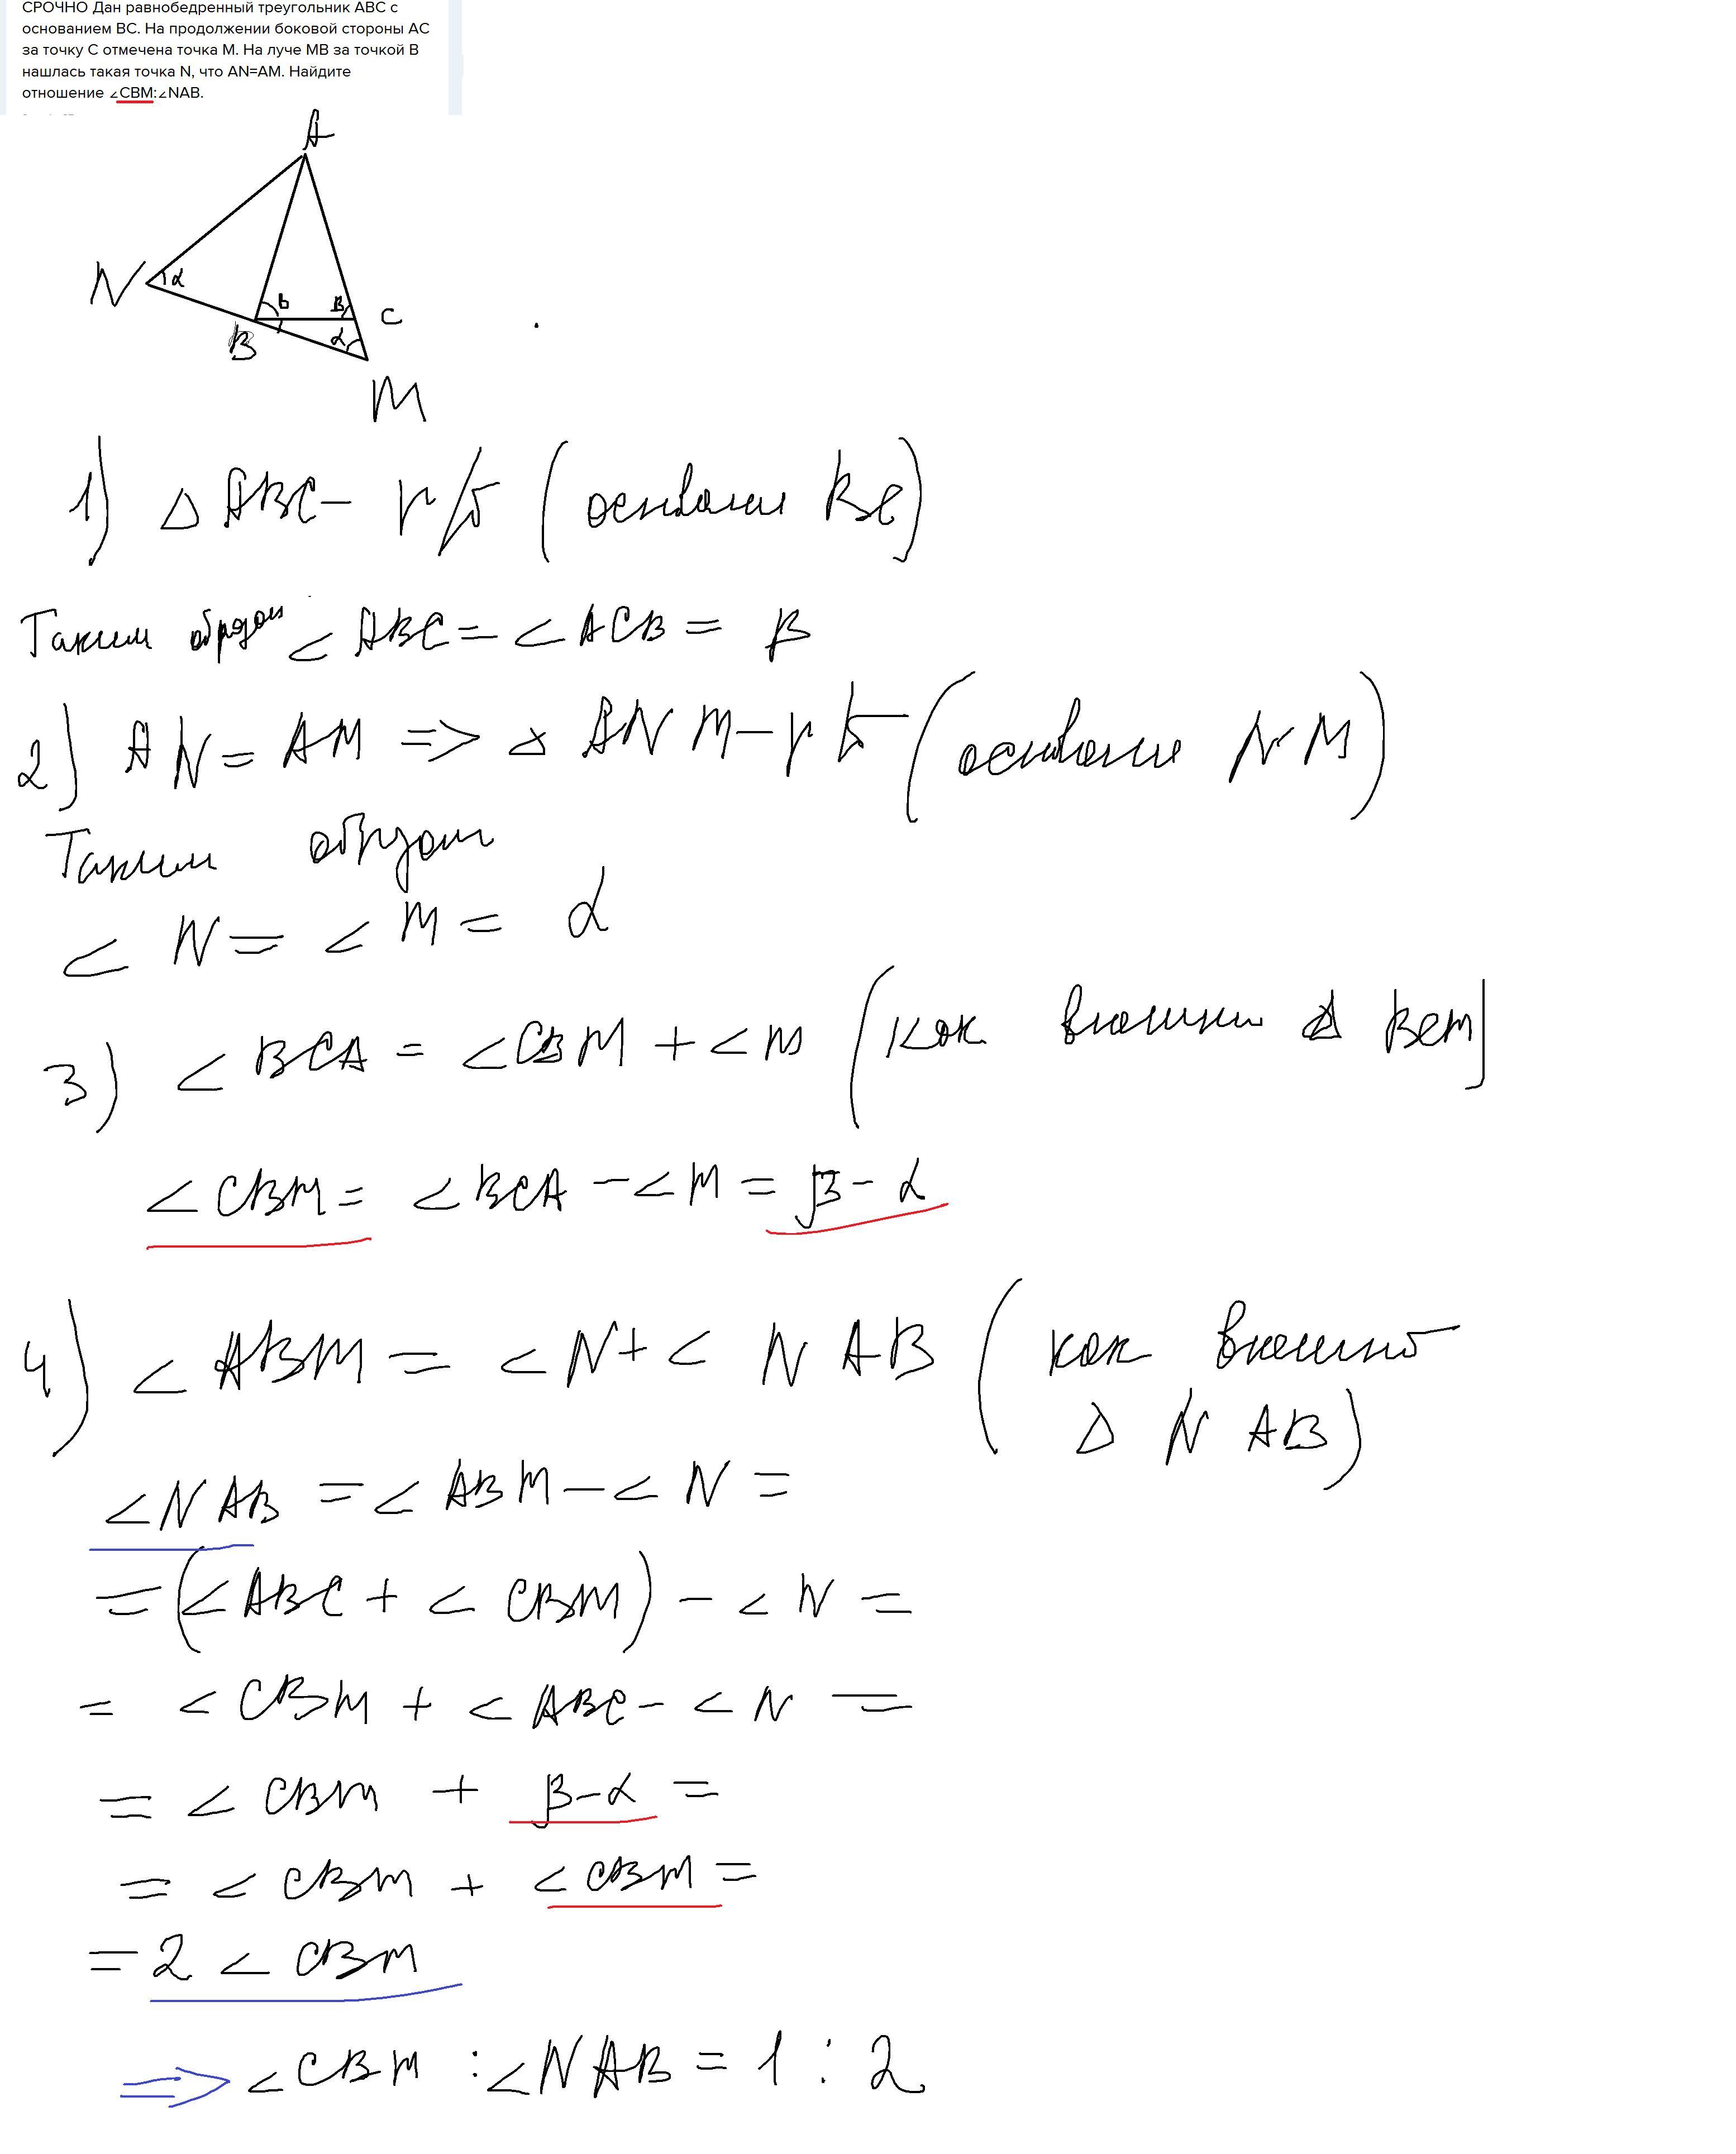 СРОЧНО Дан равнобедренный треугольник ABC с
основанием BC. На продолжении боковой стороны AC
за точку C отмечена точка M. На луче MB за точкой B
нашлась такая точка N, что AN=AM. Найдите
отношение ∠CBM:∠NAB.
A
N
α
β
β
C
B
α
M
1) Δ ABC - р/б (основани BC)
Таким образом ∠ ABC = ∠ ACB = β
2) AN = AM => Δ ANM - рб (основани NM)
Таким образом
∠ N = ∠ M = α
3) ∠ BCA = ∠ CBM + ∠ M (как внешни Δ BCM)
∠ CBM = ∠ BCA - ∠ M = β - α
4) ∠ ABM = ∠ N + ∠ NAB (как внешний
Δ NAB)
∠ NAB = ∠ ABM - ∠ N =
= (∠ ABC + ∠ CBM) - ∠ N =
= ∠ CBM + ∠ ABC - ∠ N =
= ∠ CBM + β - α =
= ∠ CBM + ∠ CBM =
= 2 ∠ CBM
=> ∠ CBM : ∠ NAB = 1 : 2